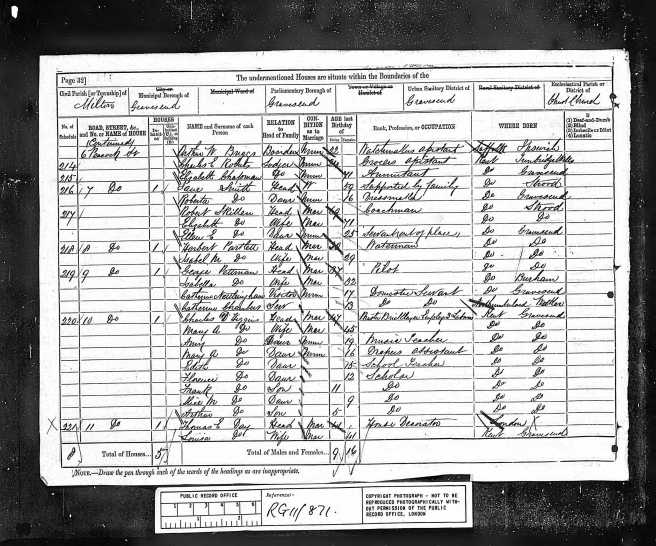 Page 32]
The undermentioned Houses are situate within the Boundaries of the
Civil Parish [or Township] of
Milton
City or Municipal Borough of
Gravesend
Municipal Ward of
Parliamentary Borough of
Gravesend
Town or Village or Hamlet of
Urban Sanitary District of
Gravesend
Rural Sanitary District of
Ecclesiastical Parish or District of
Christ Church
No. of Schedule
ROAD, STREET, &c., and No. or NAME of HOUSE
HOUSES
NAME and Surname of each Person
RELATION to Head of Family
CONDITION as to Marriage
AGE last Birthday of
Rank, Profession, or OCCUPATION
WHERE BORN
(1) Deaf-and-Dumb
(2) Blind
(3) Imbecile or Idiot
(4) Lunatic
(Continued)
6 Peacock St
Arthur W Briggs Boarder Unm 22 Watchmakers assistant Suffolk Ipswich
214 Charles E Lodger Unm Grocers assistant Kent
215 Elizabeth Chapman Do Unm 71 Annuitant Do Gravesend
216 7 Do 1 Jane Smith Head W 59 Supported by family Do Strood
Roberta Do Daur Unm 16 Dressmaker Do Gravesend
217 Robert Head Mar Coachman Do Strood
Elizabeth Do Wife Mar 71 Do Do
Do Daur Unm 25 Do Gravesend
218 8 Do 1 Herbert Bartlett Head Mar 30 Waterman Do Do
Isabel M Do Wife Mar 29 Do Do
219 9 Do 1 George Head Mar 37 Pilot Do Do
Isabella Do Wife Mar 22 Do Burham
Catherine Visitor Unm 17 Domestic Servant Do Gravesend
Catherine Serv 13 Do Do Northumberland
220 10 Do 1 Charles W Higgins Head Mar 47 Kent Gravesend
Mary A Do Wife Mar 45 Do Do
Amy Do Daur Unm 19 Music Teacher Do Do
Mary A Do Daur Unm 16 Drapers assistant Do Do
Edith Do Daur 15 School Teacher Do Do
Florence Do Daur 12 Scholar Do Do
Frank Do Son 11 Do Do Do
Alice M Do Daur 9 Do Do Do
Arthur Do Son 5 Do Do Do
221 11 Do 1 Thomas E Day Head Mar House Decorator London
Louisa Do Wife Mar 41 Kent Gravesend
8 Total of Houses... 5 Total of Males and Females... 9 16
NOTE.—Draw the pen through such of the words of the headings as are inappropriate.
PUBLIC RECORD OFFICE
1 2 3 4 5 6
1 2
Reference:-
RG11/871.
COPYRIGHT PHOTOGRAPH - NOT TO BE
REPRODUCED PHOTOGRAPHICALLY WITH-
OUT PERMISSION OF THE PUBLIC
RECORD OFFICE, LONDON